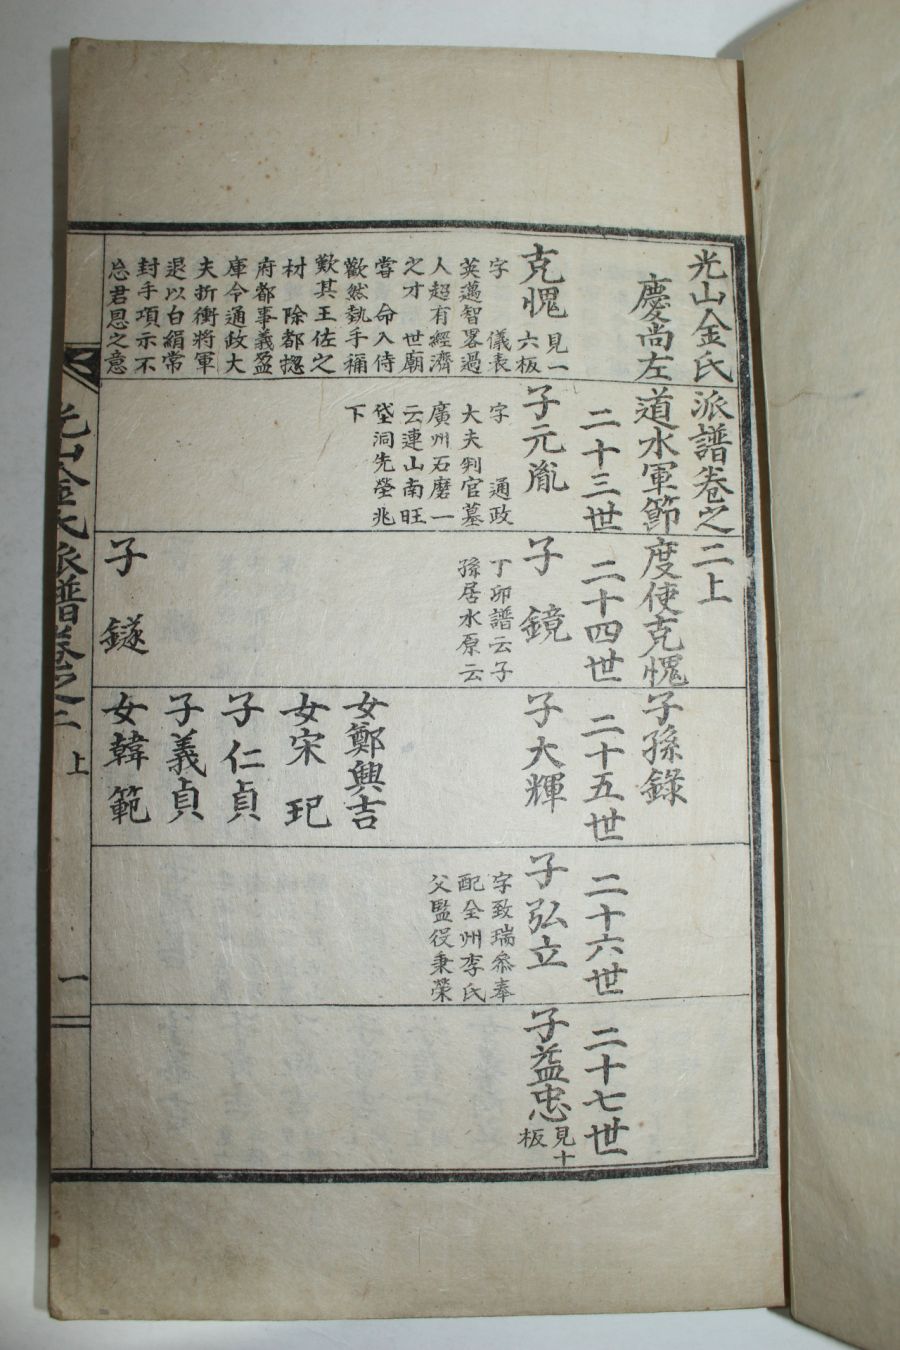 光山金氏派譜卷之二上
慶尚左道水軍節度使克愧子孫錄
二十三世
二十四世
二十五世
二十六世
二十七世
克愧
見一
六板
字　儀表
英邁智畧過
人超有經濟
之才　世廟
嘗　命入侍
歡然執手稱
歎其王佐之
材　除都摠
府都事義盈
庫令通政大
夫折衝將軍
退以白絹常
封手項示不
忘君恩之意
子元胤
字　通政
大夫判官墓
廣州石磨一
云連山南旺
垈洞先塋兆
下
子　鏡
丁卯譜云子
孫居水原云
子　鐩
子大輝
女鄭興吉
女宋　玘
子仁貞
子義貞
女韓　範
子弘立
字致瑞叅奉
配全州李氏
父監役秉榮
子益忠
見十
板
光山金氏派譜卷之二　上　一